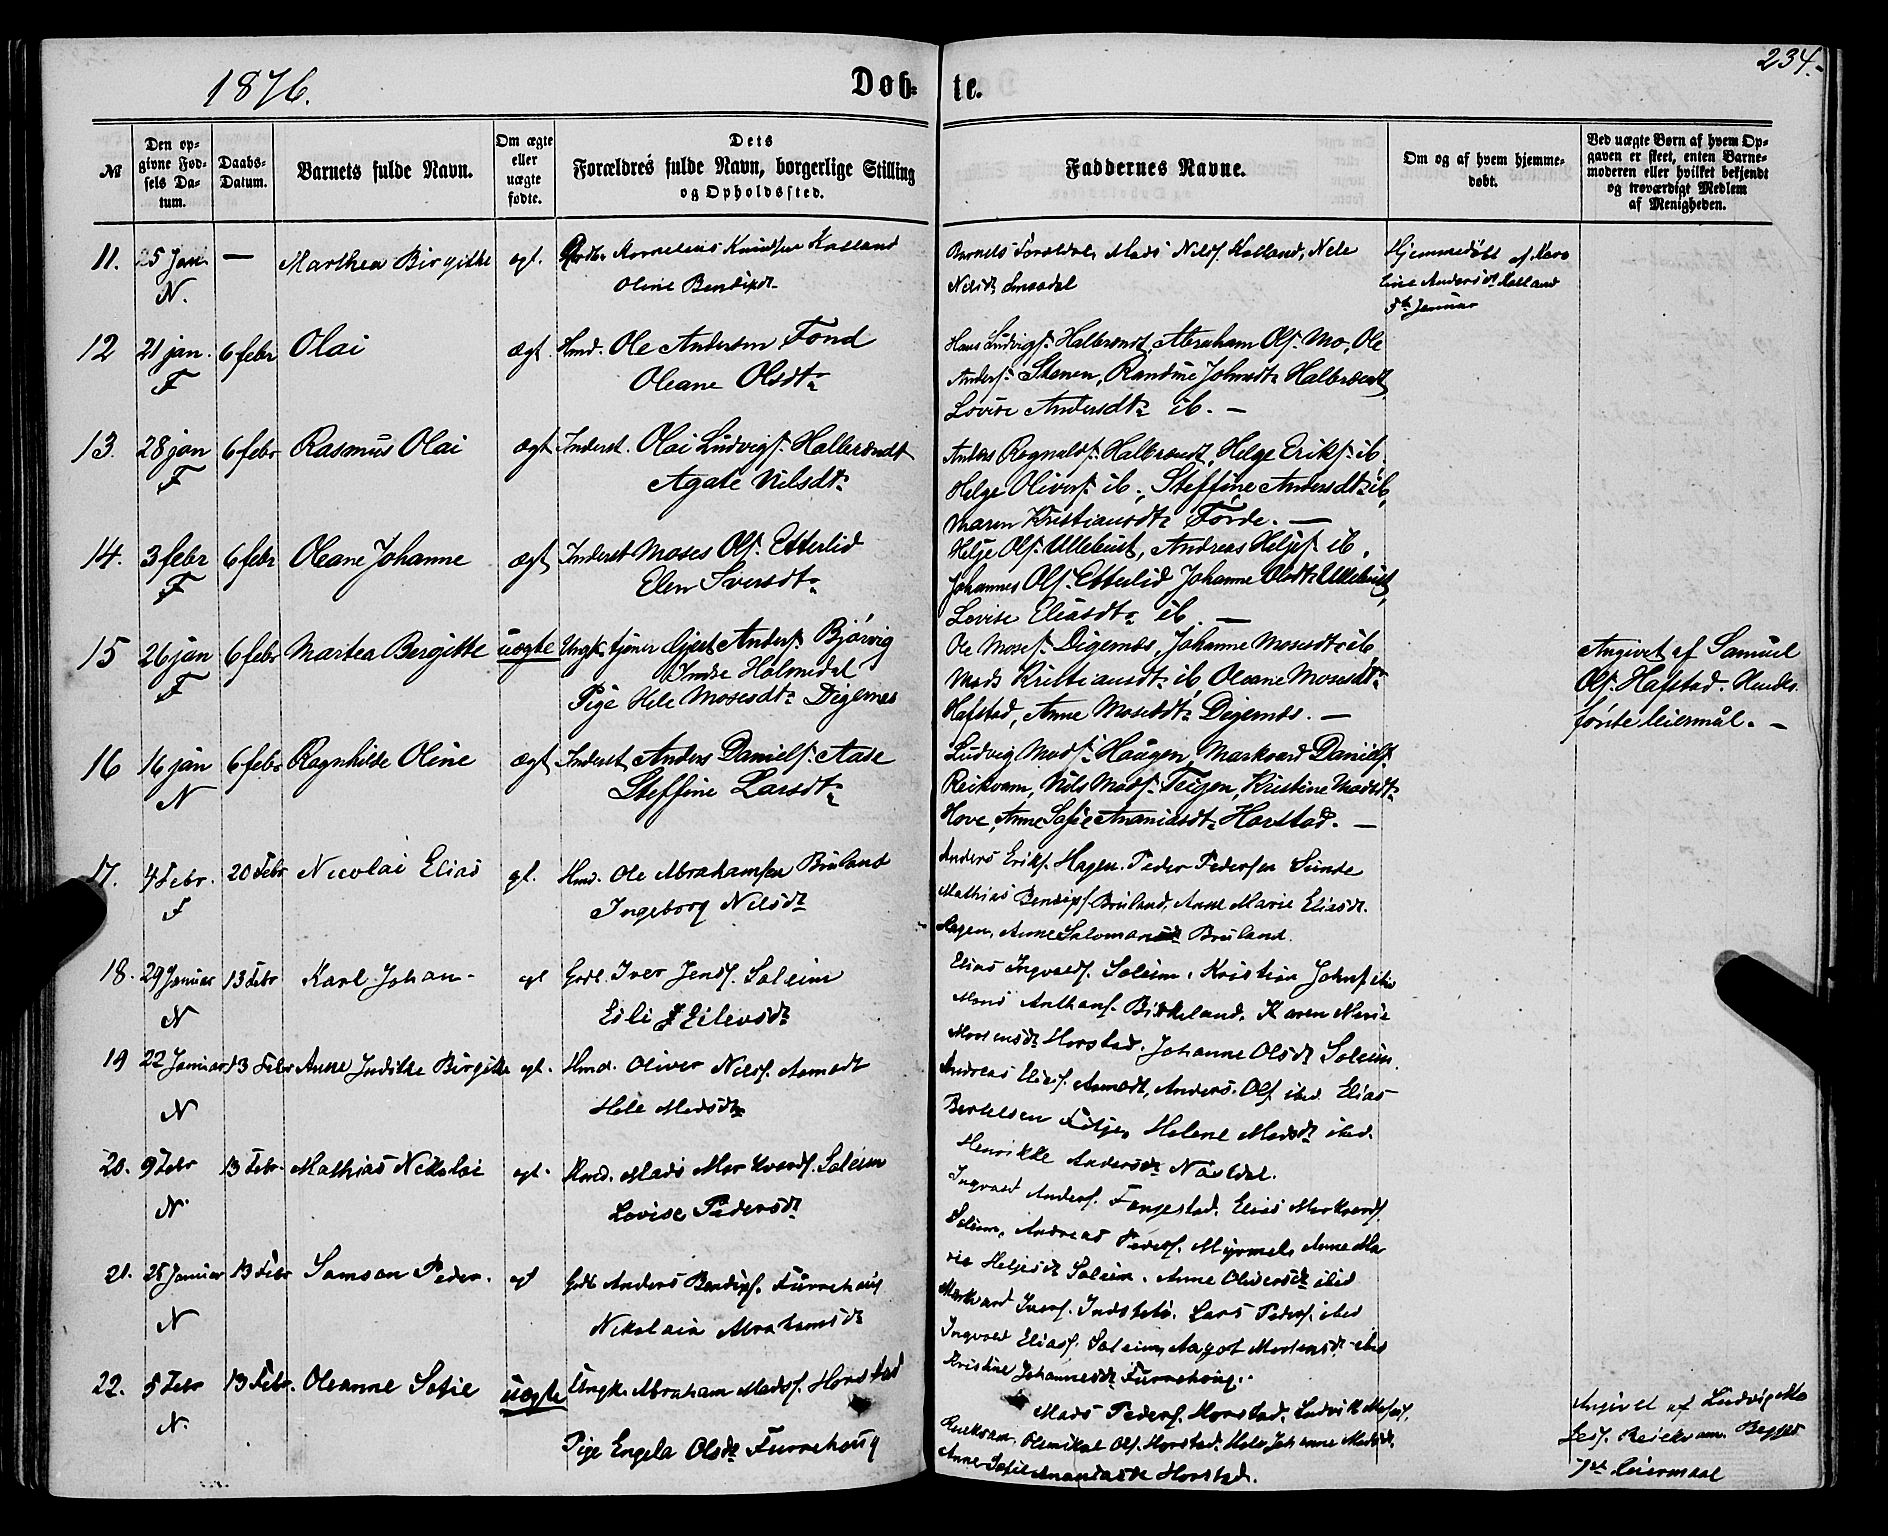 234.
1876.
Døb- te.
№
Den op-
givne Fød-
sels Da-
tum.
Daabs-
Datum.
Barnets fulde Navn.
Om ægte
eller
uægte
fødte.
Dets
Forældres fulde Navn, borgerlige Stilling
og Opholdssted.
Faddernes Navne.
Om og af hvem hjemme-
døbt.
Ved uægte Børn af hvem Op-
gaven er skeet, enten Barne-
moderen eller hvilket bekjendt
og troværdigt Medlem
af Menigheden.
11. 25 Jan. — Marthea Birgitte egt. Kornelius Knudsen Kalland
N. Oline Bendixdtr
Barnets Forældre, Mads Nilsf. Kalland, Nele
Nilsdtr
Hjemmedøbt af Karo
line Andersdtr Kalland
Januar
12 21 jan. 6 febr Olai ægt. Hmd. Ole Andersen Fond
F Oleane Olsdtr
Hans Ludvigsf. Halbrendt, Abraham Olsf. Mo, Ole
Andersf. Stenen, Randine Johnsdtr Halbrendt
Lovise Andersdtr ib. —
13. 28 jan 6 febr Rasmus Olai ægt Inderst. Olai Ludvigsf. Halbrendt
F Agate Nilsdtr
Anders Ragnvaldsf. Halbrendt, Helge Eriksf. ib.
Helge Oliversf. ib., Steffine Andersdtr ib,
Maren Kristiansdtr Førde. —
14. 3 febr 6 febr Oleane Johanne ægt Inderst Moses Olsf. Etterlid
F Elen Sversdtr
Helje Olsf. Ullebust, Andreas Heljesf. ib.
Johannes Olsf. Etterlid Johanne Olsdtr Ullebust,
Lovise Eliasdtr ib. —
15 26 jan 6 febr Martea Bergitte uægte Ungk. tjener Andersf. Bjørvig
F Indre Holmedal
Pige Hele Mosesdtr Digernes
Ole Mosesf. Digernes, Johanne Mosesdtr ib
Mads Kristiansdtr ib Oleane Mosesdtr
Hafstad, Anne Mosesdtr Digernes. —
Angivet af Samuel
Olsf. Hafstad. Hendes
første leiermål. —
16 16 jan 6 febr Ragnhilde Oline ægt Inderst Anders Danielsf. Aase
N Steffine Larsdtr
Ludvig Madsf. Haugen, Markvard Danielsf.
Reikvam, Nils Madsf. Teigen, Kristine Madsdtr
Hove, Anne Sofie Ananiasdtr Horstad. —
17. 4 Febr. 20 Febr Nicolai Elias gt. Hmd. Ole Abrahamsen Bruland
F Ingeborg Nilsdtr
Anders Eriksf. Hagen. Peder Pedersen Sunde
Mathias Bendixsf. Bruland, Anne Marie Eliasdtr.
Hagen, Anne Salomonsdtr Bruland.
18. 29 Januar 13 Febr Karl Johan egt Grdb. Iver Jensf. Soleim
N Eli Eilevsdtr
Elias Ingvaldsf. Soleim, Kristian Johnsf. ibid
Mons Anthonsf. Birkeland, Karen Marie
Mortensdtr Horstad. Johanne Olsdtr Soleim.
19 22 Januar 13 Febr Anne Judithe Birgitte egt. Hmd. Oliver Nilsf. Asmodt
N Hele Madsdtr
Andreas Eliasf. Asmodt, Anders Olsf. ibid. Elias
Bertelsen Fitje, Helene Madsdtr ibid.
Henrikke Andersdtr Nasdal.
20. 9 Febr 13 Febr. Mathias Nikolai egt. Hmd. Mads Markvardsf. Soleim
N. Lovise Pedersdtr
Ingvald Andersf. Fangestad. Elias Markvardsf.
Soleim, Andreas Pedersf. Myrmel, Anne Ma
rie Heljesdtr Soleim. Anne Oliversdtr ibid
21. 25 Januar 13 Febr Samson Peder. egt Grdb Anders Bendixsf. Furrehaug
N Nikolaia Abrahamsdtr
Markvard Iversf. Indstetø. Lars Pedersf. ibid
Ingvald Eliasf. Soleim, Aagot Mortensdtr ibid
Kristine Johannesdtr Furrehaug.
22. 5 Febr 13 Febr. Oleanne Sofie uægte Ungk. Abraham Madsf. Horstad
N. Pige Engela Olsdtr Furrehaug
Mads Pedersf. Horstad. Ludvik Mosesf.
Reikvam, Olsf. Horstad. Hele Johanne Madsdtr,
Anne Sofie Ananiasdtr Horstad.
Angivet af Ludvig Mo
sesf. Reikvam. Begges
1ste Leiermaal